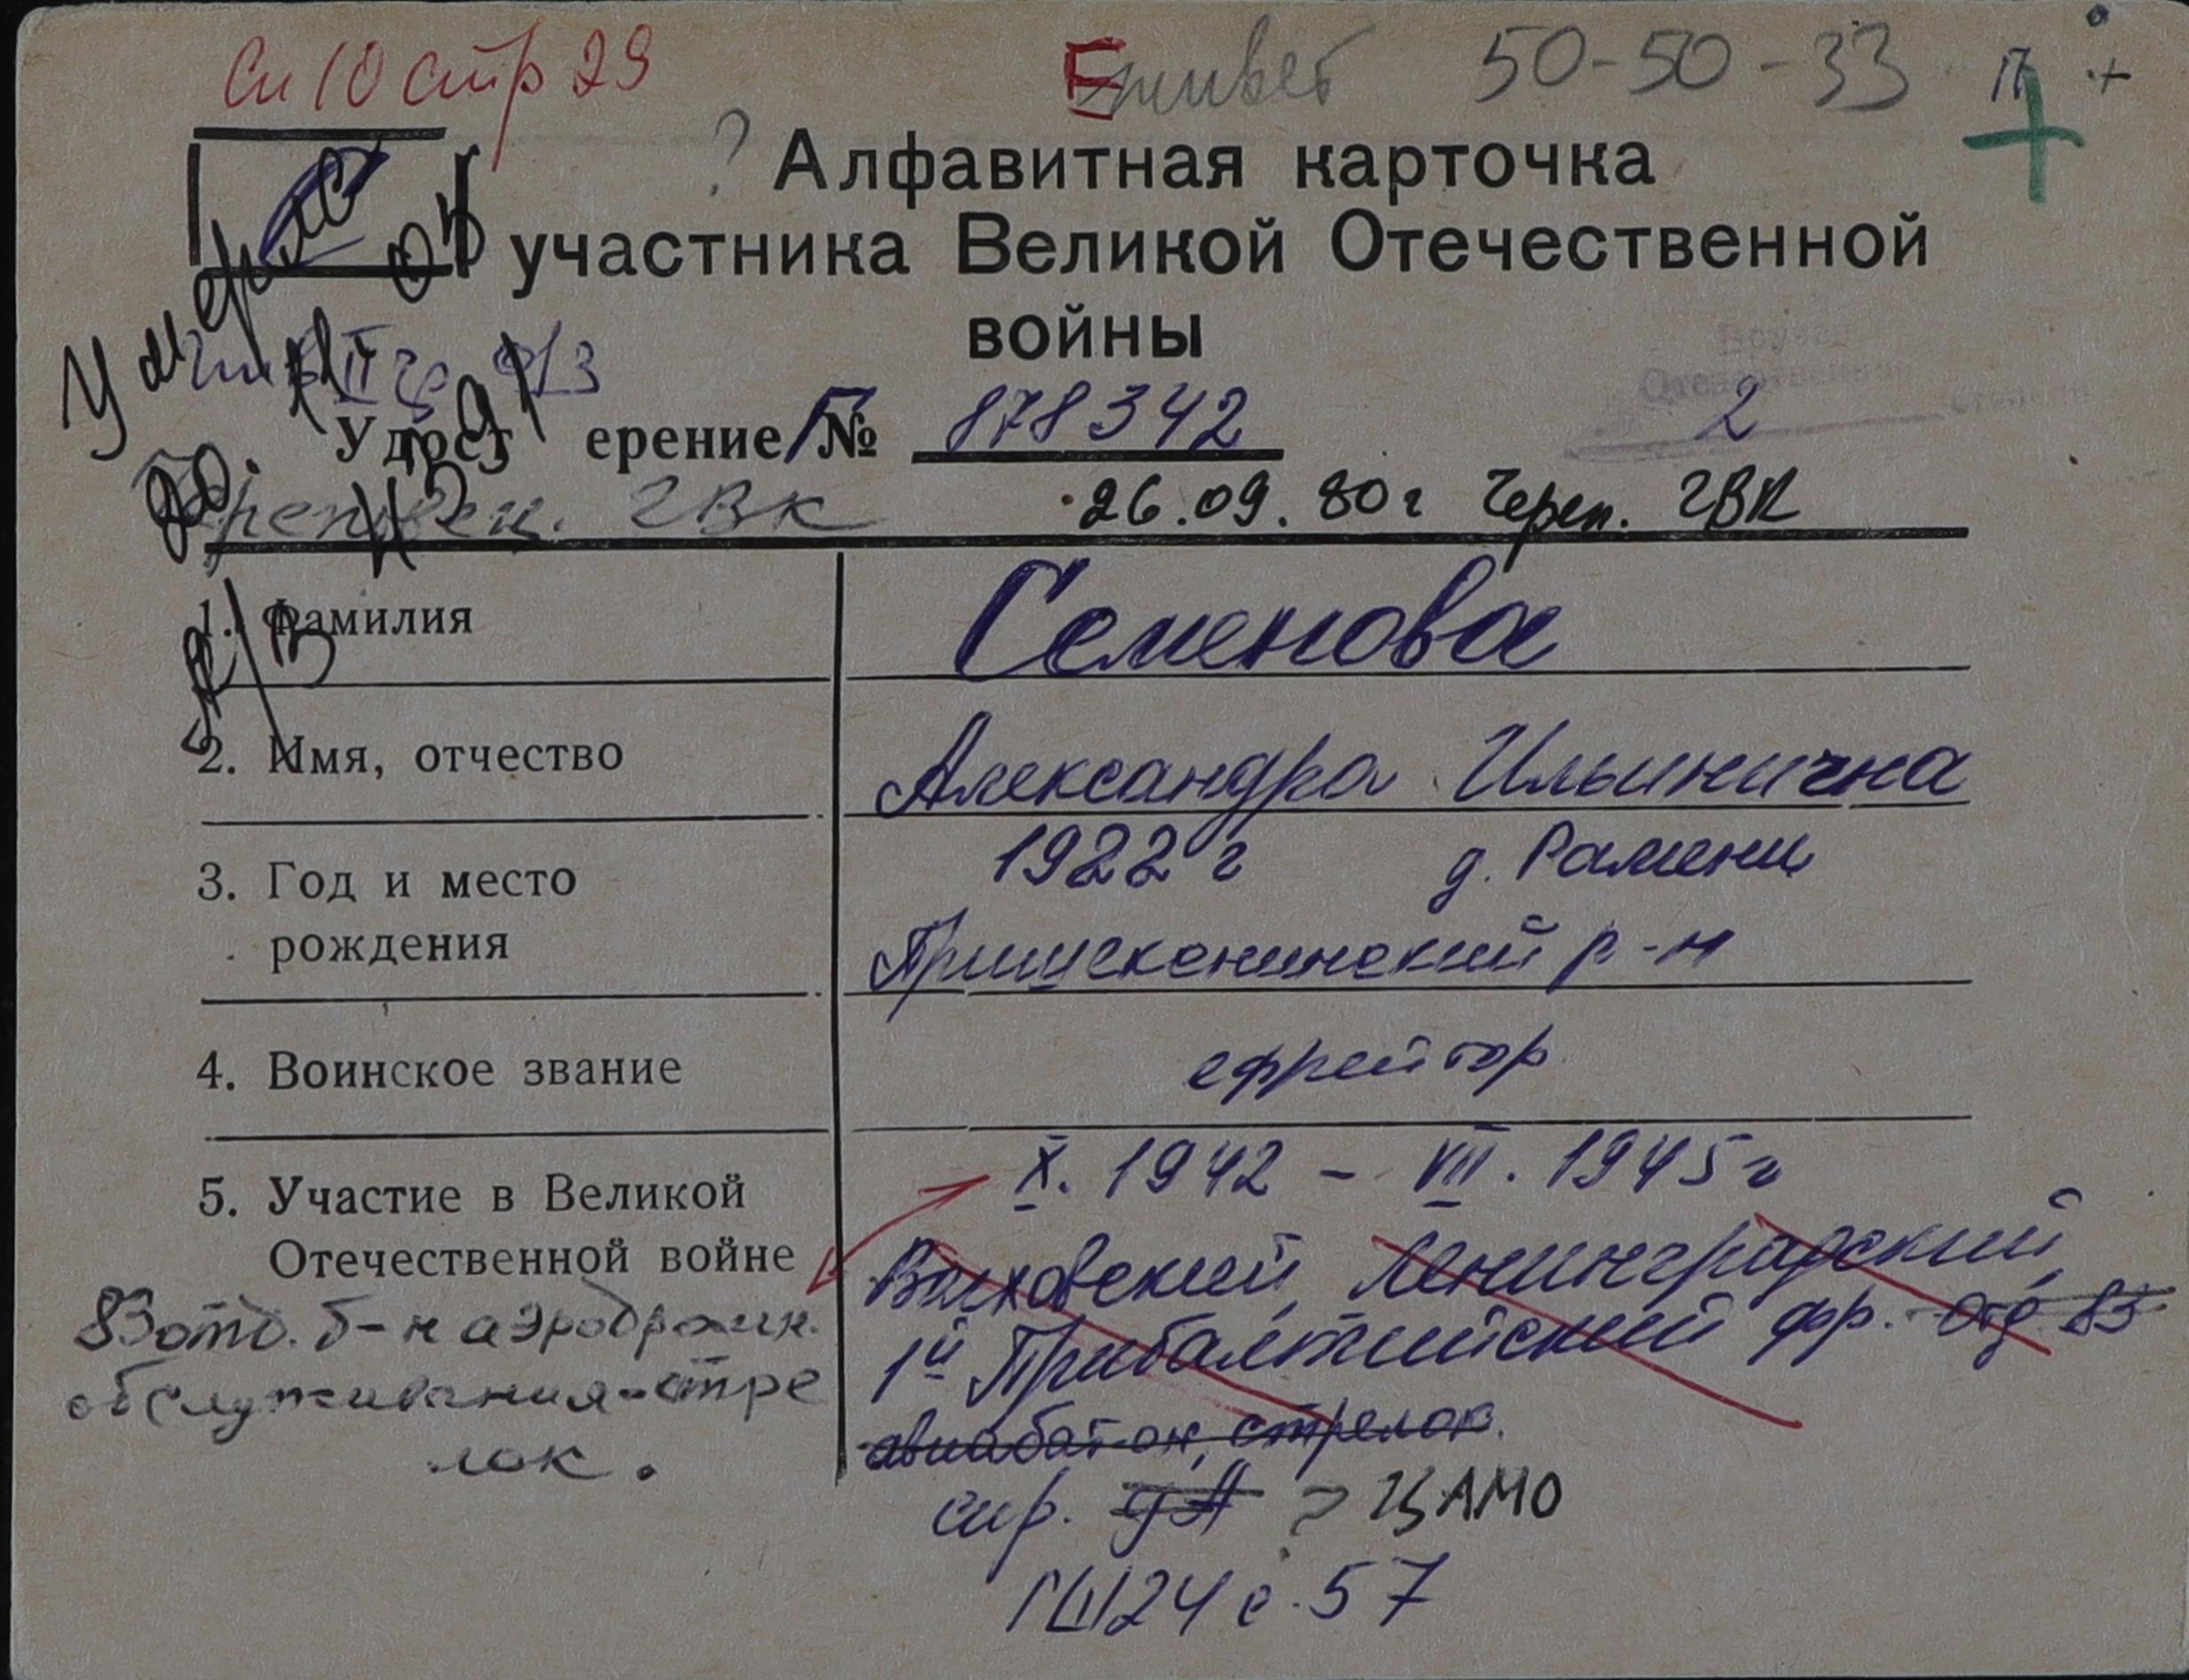 Сп 10 стр 29
Е живет 50-50-33 П +
? Алфавитная карточка
участника Великой Отечественной
войны
Умерла
Удост ерение Г № 878342
2
Череповец. ГВК 26.09.80 г Череп. ГВК
1. Фамилия Семенова
2. Имя, отчество Александра Ильинична
3. Год и место 1922 г д. Рамени
рождения Пришекснинский р-н
4. Воинское звание ефрейтор
5. Участие в Великой X. 1942 - VII. 1945 г
Отечественной войне Волховский, Ленинградский,
83 отд. б-н аэродромн. 1й Прибалтийский фр. отд 83
обслуживания-стре авиабат-он, стрелок.
лок. спр. ? ЦАМО
ГШ 24 с. 57